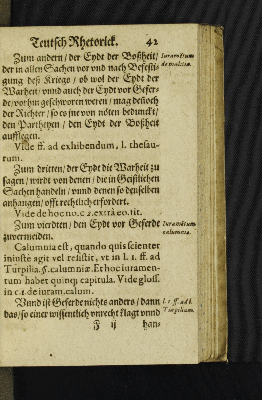 Teutsch Rhetorick. 42
Zum andern / der Eydt der Boßheit /
der in allen Sachen vor vnd nach Befesti-
gung deß Kriegs / ob wol der Eydt der
Warheit / vnnd auch der Eydt vor Gefer-
de / vorhin geschworen weren / mag dennoch
der Richter / so es jne von nöten bedunckt /
den Partheyen / den Eydt der Boßheit
aufflegen.
Iuramentum
de malitia.
Vide ff. ad exhibendum, l. thesau-
rum.
Zum dritten / der Eydt die Warheit zu
sagen / wirdt von denen / die in Geistlichen
Sachen handeln / vnnd denen so denselben
anhangen / offt rechtlich erfordert.
Vide de hoc no. c 2. extra eo. tit.
Zum vierdten / den Eydt vor Geferde
zuvermeiden.
Iuramentum
calumniæ.
Calumnia est, quando quis scienter
iniustè agit vel resistit, vt in l. 1. ff. ad
Turpilia. §. calumniæ. Et hoc iuramen-
tum habet quinq; capitula. Vide gloss.
in c. 1. de iuram. calum.
Vnnd ist Geferde nichts anders / dann
das / so einer wissentlich vnrecht klagt vnnd
l. 1. ff. ad l.
Turpilian.
F ij han-